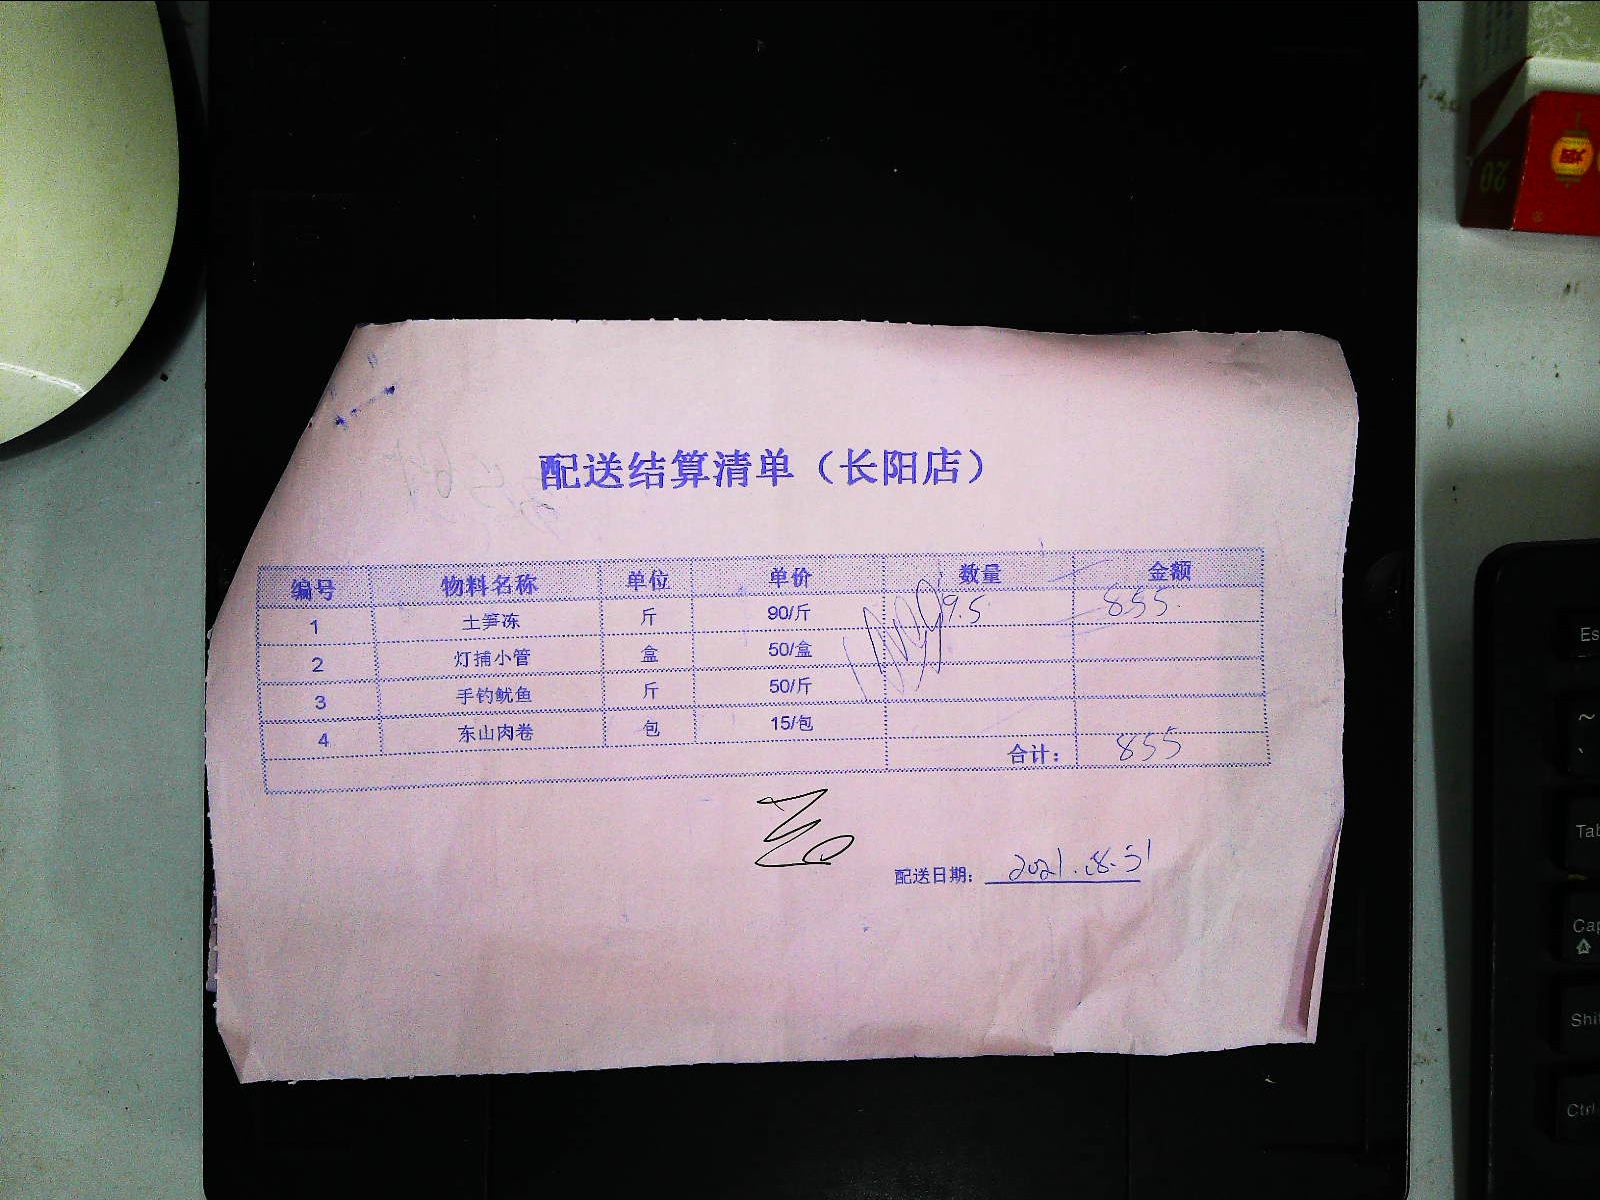 配送结算清单（长阳店）
编号 物料名称 单位 单价 数量 金额
1 土笋冻 斤 90/斤 9.5 855.
2 灯捕小管 盒 50/盒
3 手钓鱿鱼 斤 50/斤
4 东山肉卷 包 15/包
合计： 855
配送日期： 2021.8.31
20
Es
~
Tab
Cap
Shi
Ctrl